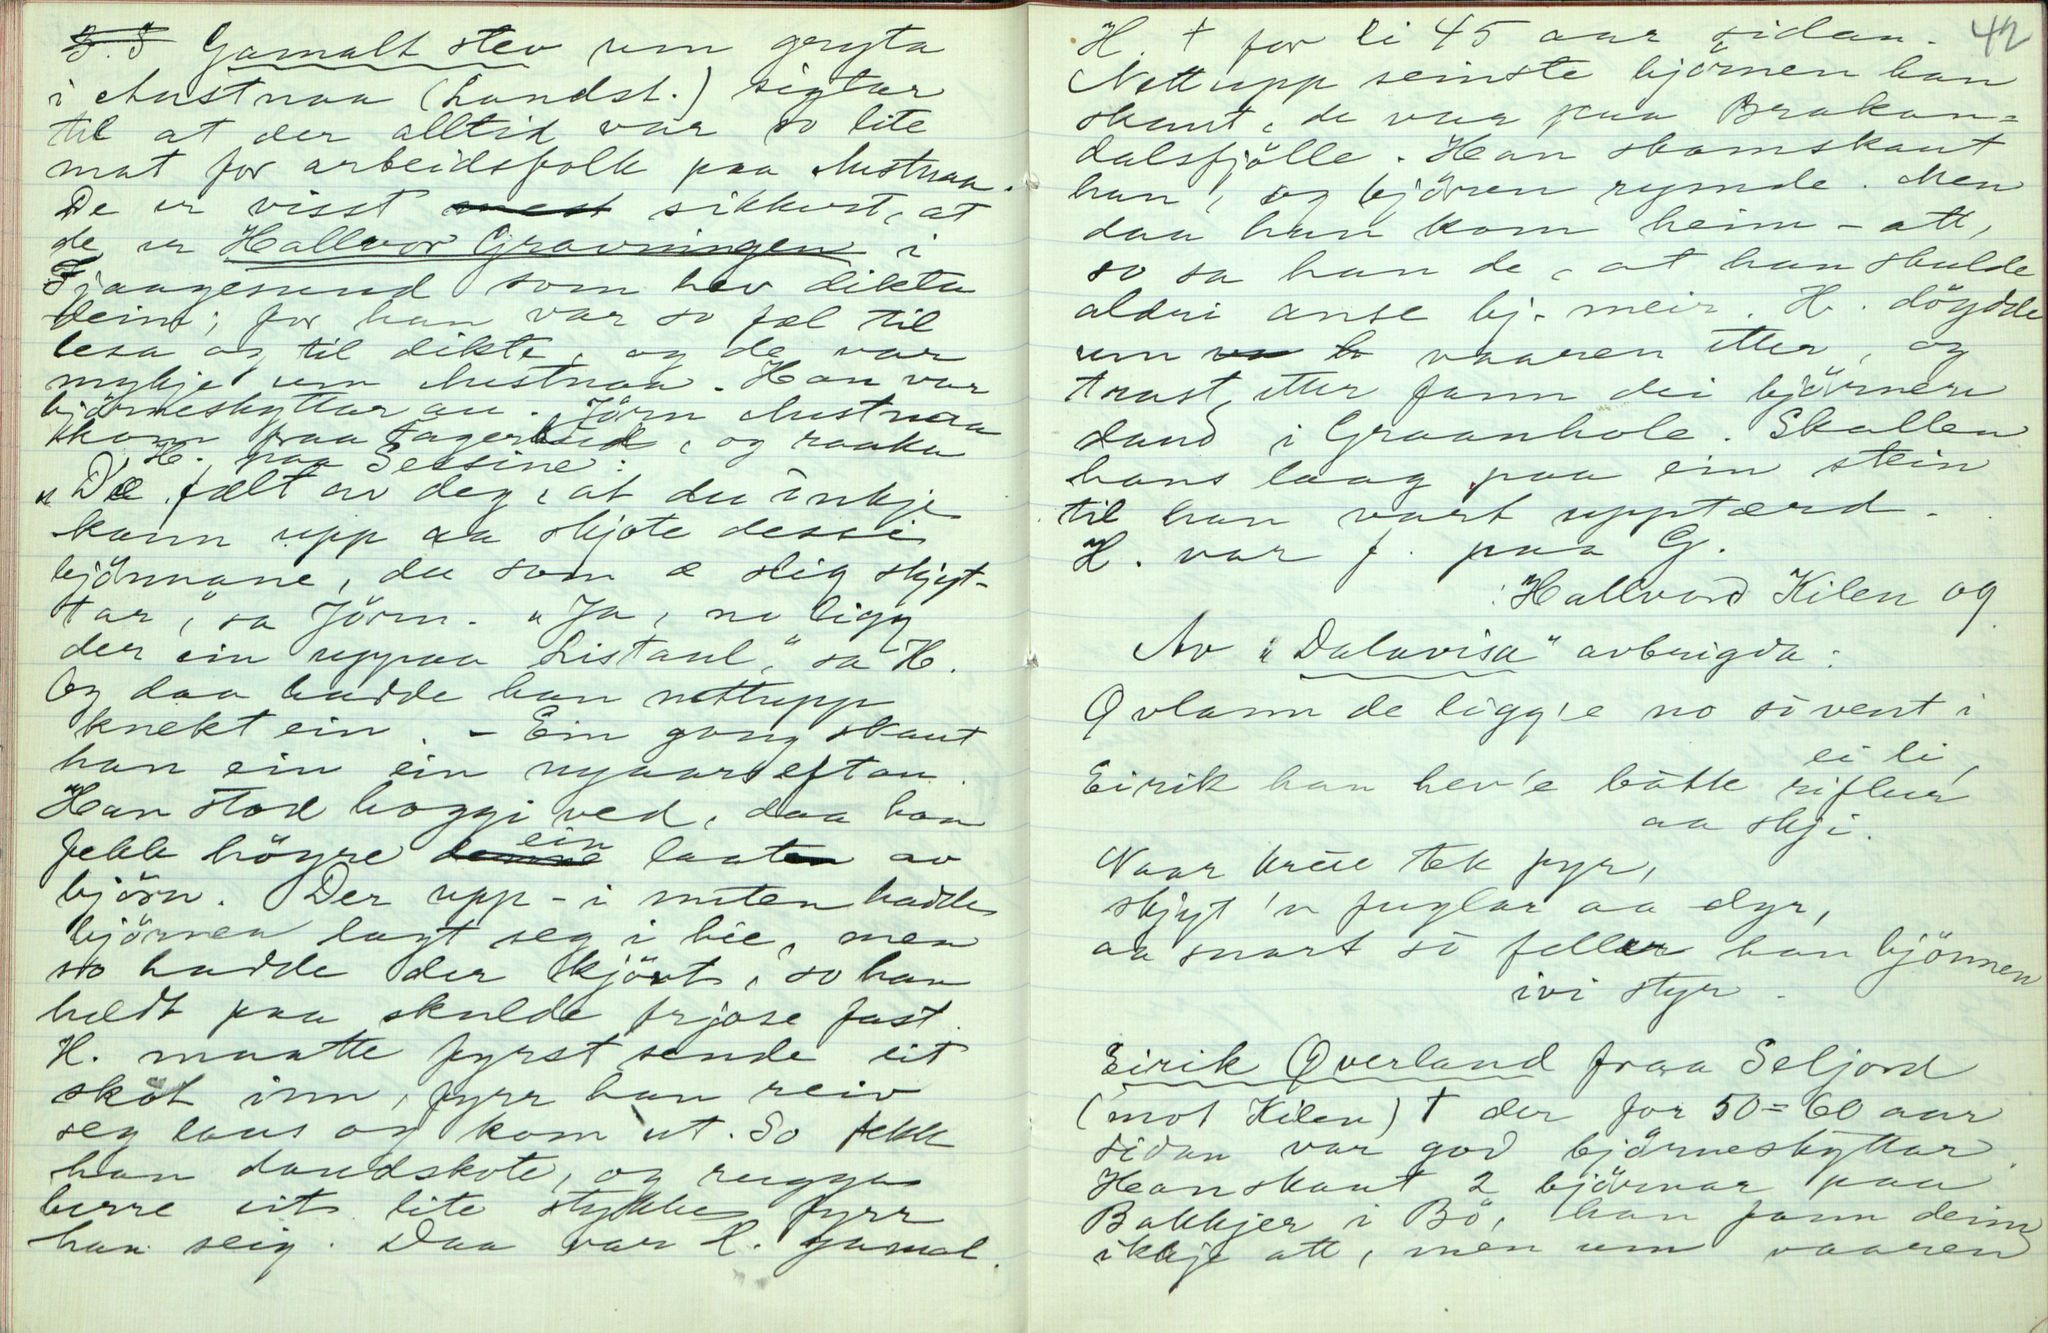 Gamalt stev um gryta
i Austnaa (Landst.) sigtar
til at der alltid var so lite
mat for arbeidsfolk paa Austnaa.
De er visst mest sikkert, at
de er Hallvor Gravningen i
Fjaagesund som hev dikta
deim; for han var so fæl til
lesa og til dikte, og de var
mykje um Austnaa. Han var
björneskyttar au. Jörn Austnaa
kom fraa Fagerlid, og raaka
H. paa Sessine:
"De fælt av deg, at du inkje
kann upp aa skjote dessi
björnnane, du som æ slig skjyt-
tar," sa Jörn. "Ja, no ligg
der ein uppaa Listaul," sa H.
Og daa hadde han nettupp
knekt ein. - Ein gong skaut
han ein ein nyaarseftan.
Han stod hoggi ved, daa han
fekk höyre denne ein laaten av
björn. Der upp-i nuten hadde
björnen lagt seg i hie, men
so hadde der kjövt, so han
heldt paa skulde frjose fast.
H. maatte fyrst sende eit
skot inn, fyrr han reiv
seg laus og kom ut. So fekk
han daudskote, og rugga
berre eit lite stykke fyrr
han seig. Daa var H. gamal.
42
H. † for li 45 aar sidan.
Nettupp seinste björnen han
skaut, de var paa Brokan=
dalsfjölle. Han skamskaut
han, og björen rymde. Men
daa han kom heim-att,
so sa han de, at han skulde
aldri anse bj. meir. H. döydde
um vaaren etter, og
trast etter fann dei björnen
daud i Graanhole. Skallen
hans laag paa ein stein
til han vart upptærd.
H. var f. paa G.
: Hallvord Kilen og
Av "Dalavisa" avbrigda:
Øvlann de ligg'e no so vent i
ei li,
Eirik han hev'e båtte riflur
aa skji.
Naar krue tek fyr,
skjyt 'n fuglar aa dyr,
aa snart so feller han björnnen
ivi styr.
Eirik Øverland fraa Seljord
(mot Kilen) † der for 50=60 aar
sidan var god björneskyttar.
Han skaut 2 björnar paa
Bakkjer i Bö, han fann deim
ikkje att, men um vaaren